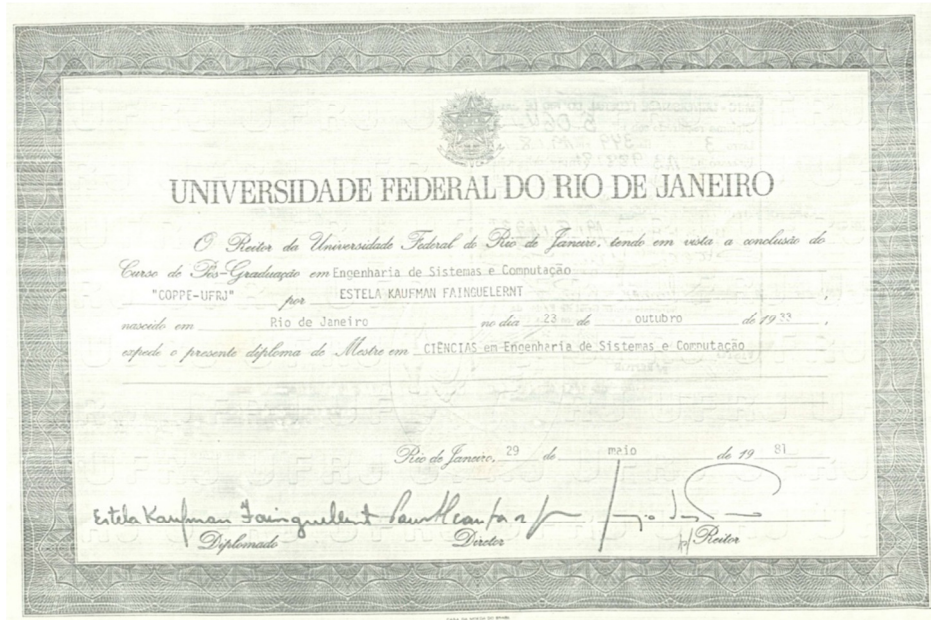 UNIVERSIDADE FEDERAL DO RIO DE JANEIRO
O Reitor da Universidade Federal do Rio de Janeiro, tendo em vista a conclusão do
Curso de Pós-Graduação em Engenharia de Sistemas e Computação
"COPPE-UFRJ" por ESTELA KAUFMAN FAINGUELERNT ,
nascido em Rio de Janeiro no dia 23 de outubro de 1933 ,
expede o presente diploma de Mestre em CIÊNCIAS em Engenharia de Sistemas e Computação
Rio de Janeiro, 29 de maio de 19 81
Estela Kaufman Fainguelernt
Diplomado Diretor p/ Reitor